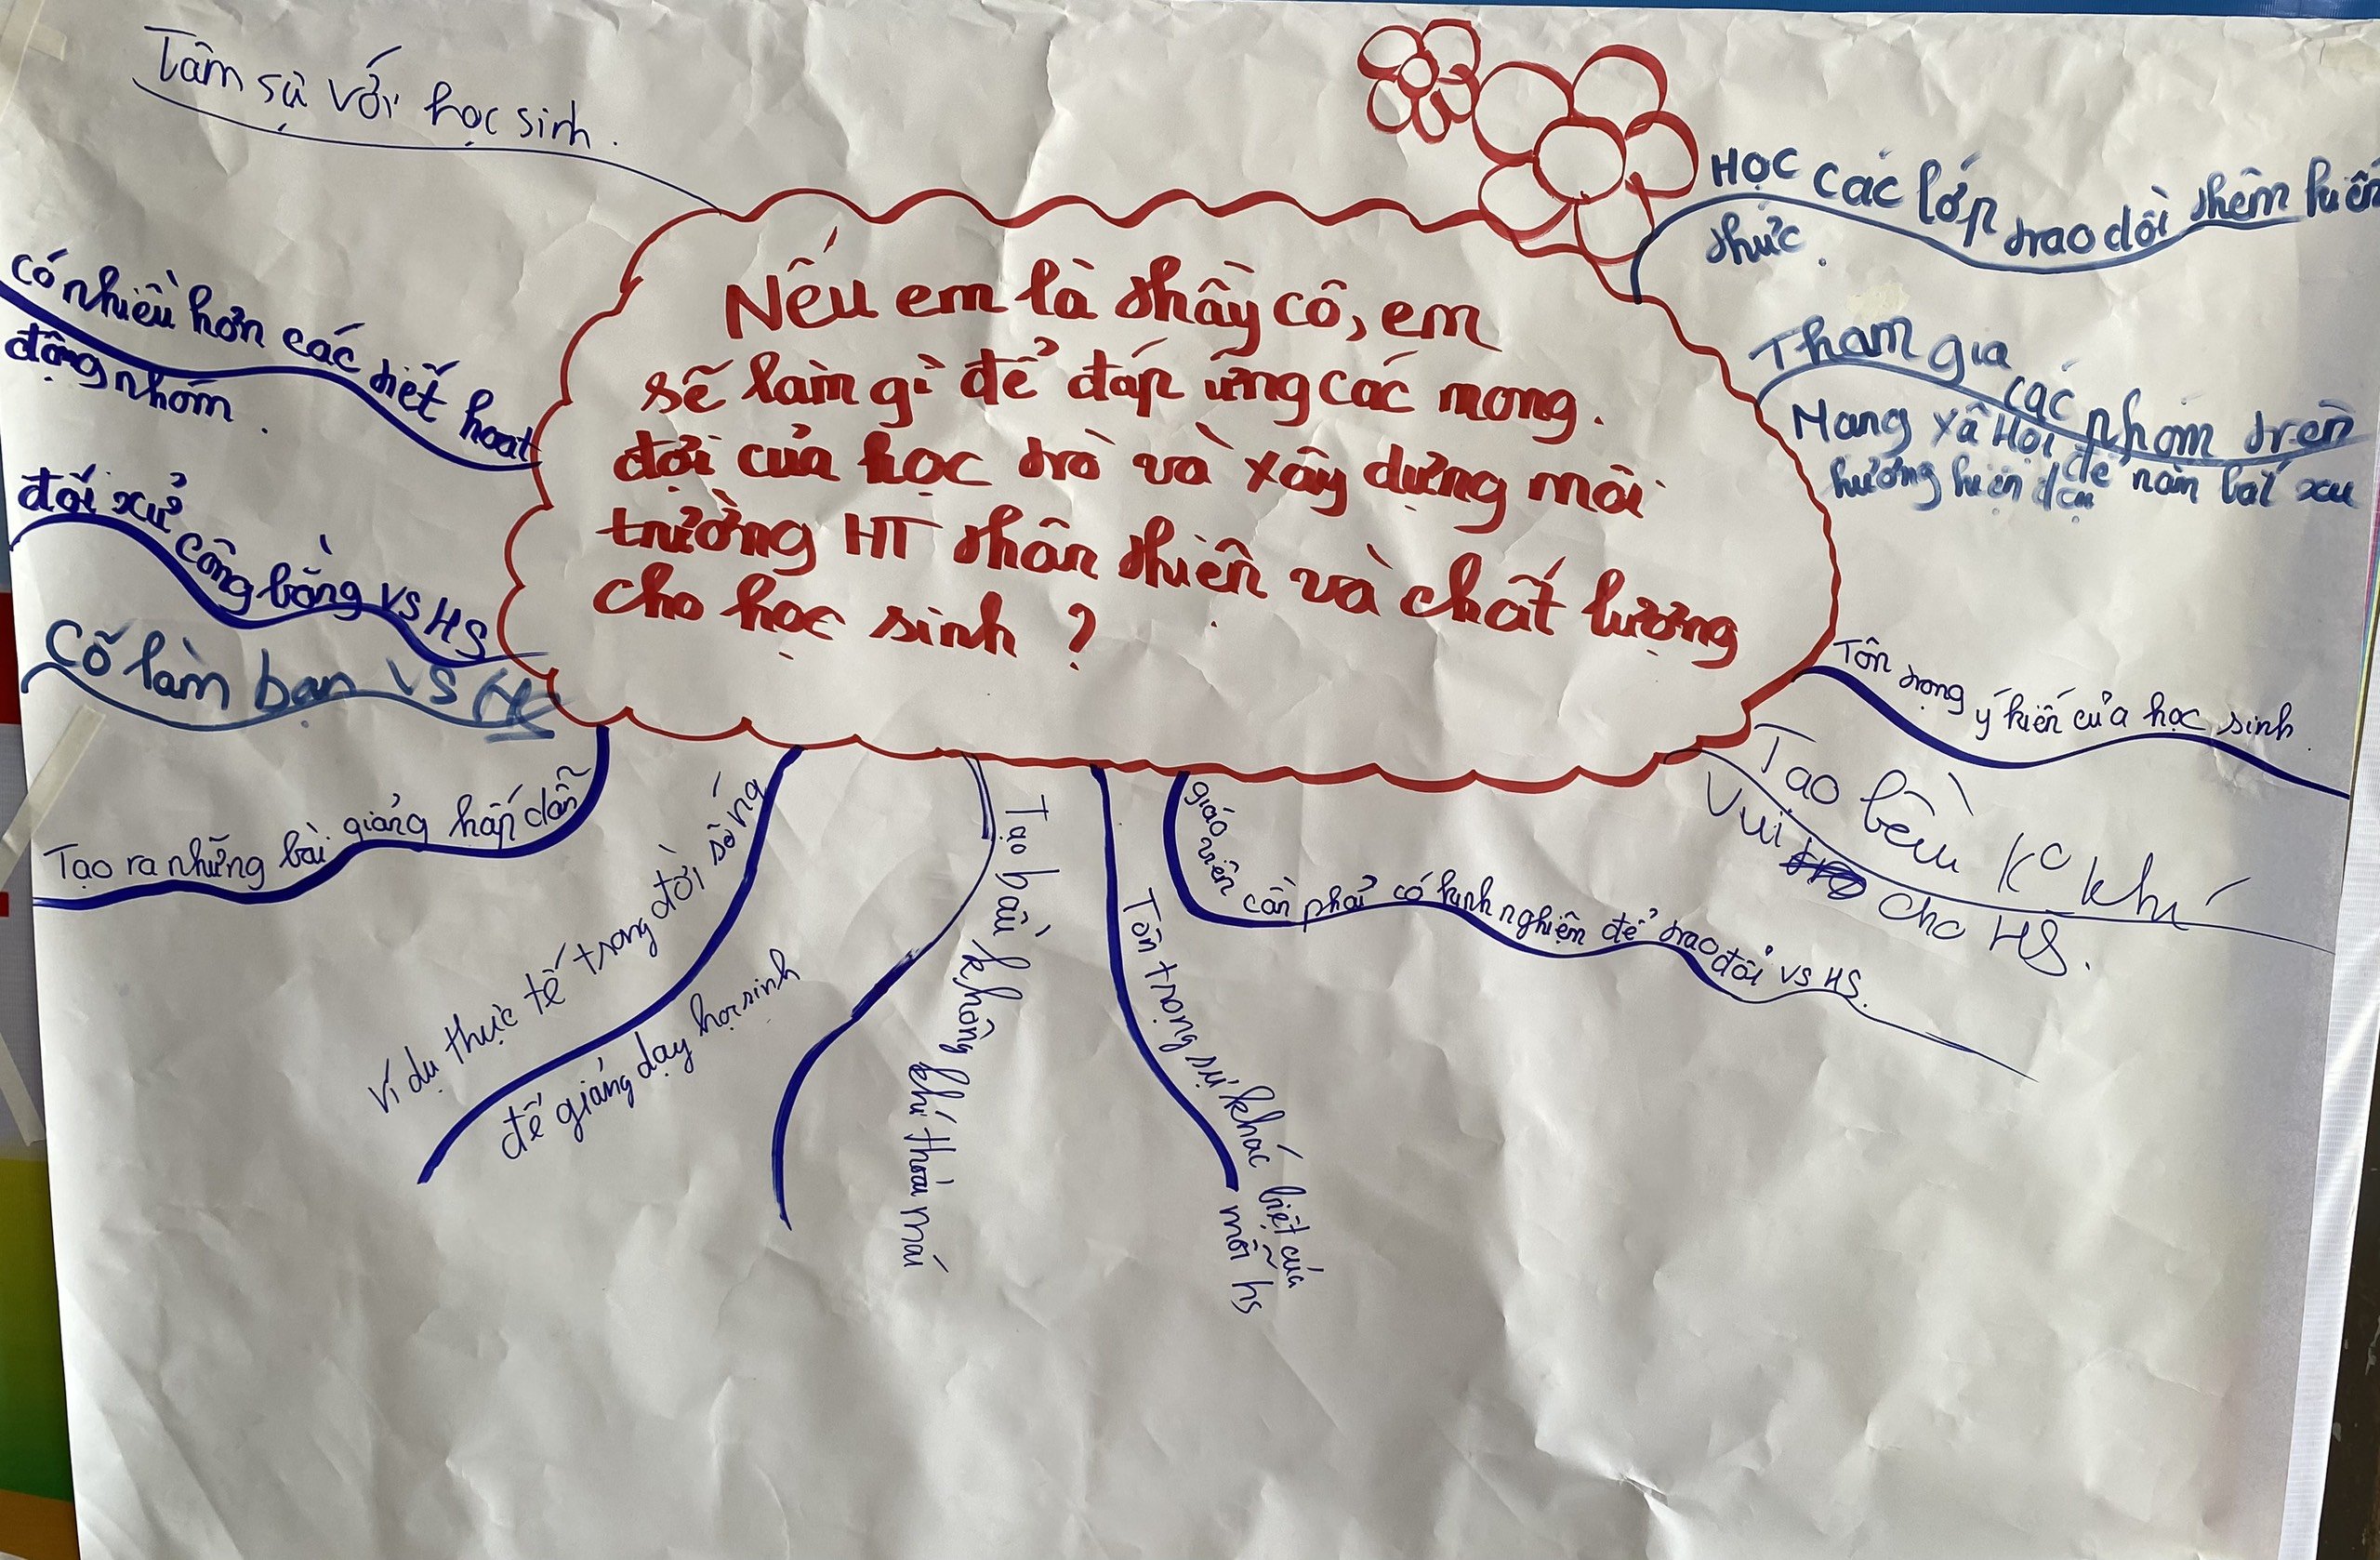 Tâm sự với học sinh.
có nhiều hơn các tiết hoạt
động nhóm.
đối xử công bằng vs HS
Cố làm bạn vs HS
Tạo ra những bài giảng hấp dẫn
Nếu em là thầy cô, em
sẽ làm gì để đáp ứng các mong.
đợi của học trò và xây dựng môi
trường HT thân thiện và chất lượng
cho học sinh ?
Học các lớp trao dồi thêm kiến
thức.
Tham gia các nhóm trên
Mạng xã Hội để nắm bắt xu
hướng hiện đại
Tôn trọng ý kiến của học sinh.
Tạo bầu k° khí
Vui cho HS.
giáo viên cần phải có kinh nghiệm để trao đổi vs HS.
Tôn trọng sự khác biệt của
mỗi hs
Tạo bầu không khí thoải mái
Ví dụ thực tế trong đời sống
để giảng dạy học sinh